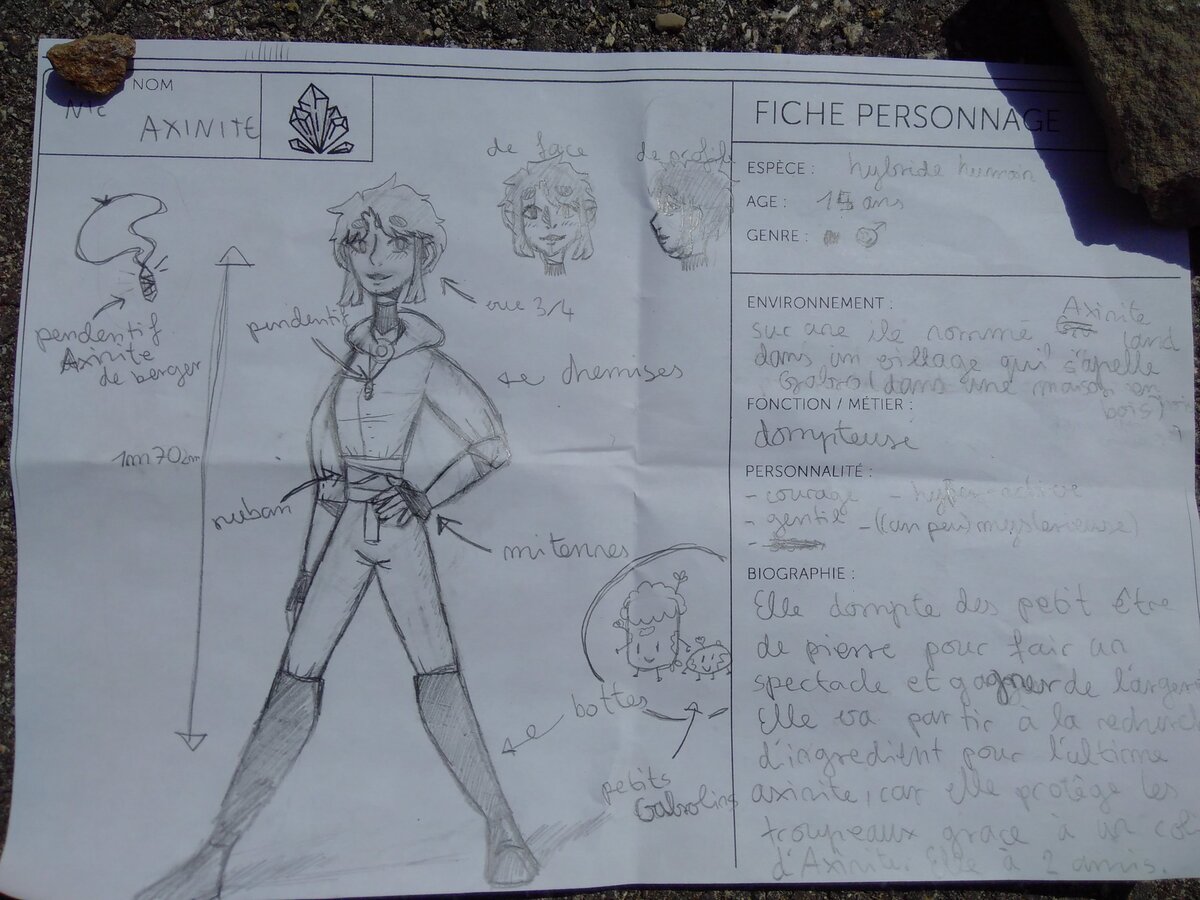 NOM
AXINITE
pendentif
Axinite
de berger
1m70cm
pendentif
ruban
de face
de profil
vue 3/4
chemises
mitennes
bottes
petits
Gabrolins
FICHE PERSONNAGE
ESPÈCE : hybride humain
AGE : 15 ans
GENRE : ♂
ENVIRONNEMENT : Axinite
sur une île nommé land
dans un village qui s'apelle
Gabro (dans une maison en
bois)
FONCTION / MÉTIER :
dompteuse
PERSONNALITÉ :
- courage - hyper-active
- gentil - ((un peu) mysterieuse)
BIOGRAPHIE :
Elle dompte des petit être
de pierre pour fair un
spectacle et gagner de l'argent
Elle va partir à la recherche
d'ingredient pour l'ultime
axinite, car elle protège les
troupeaux grace à un col
d'Axinite. Elle à 2 amis.